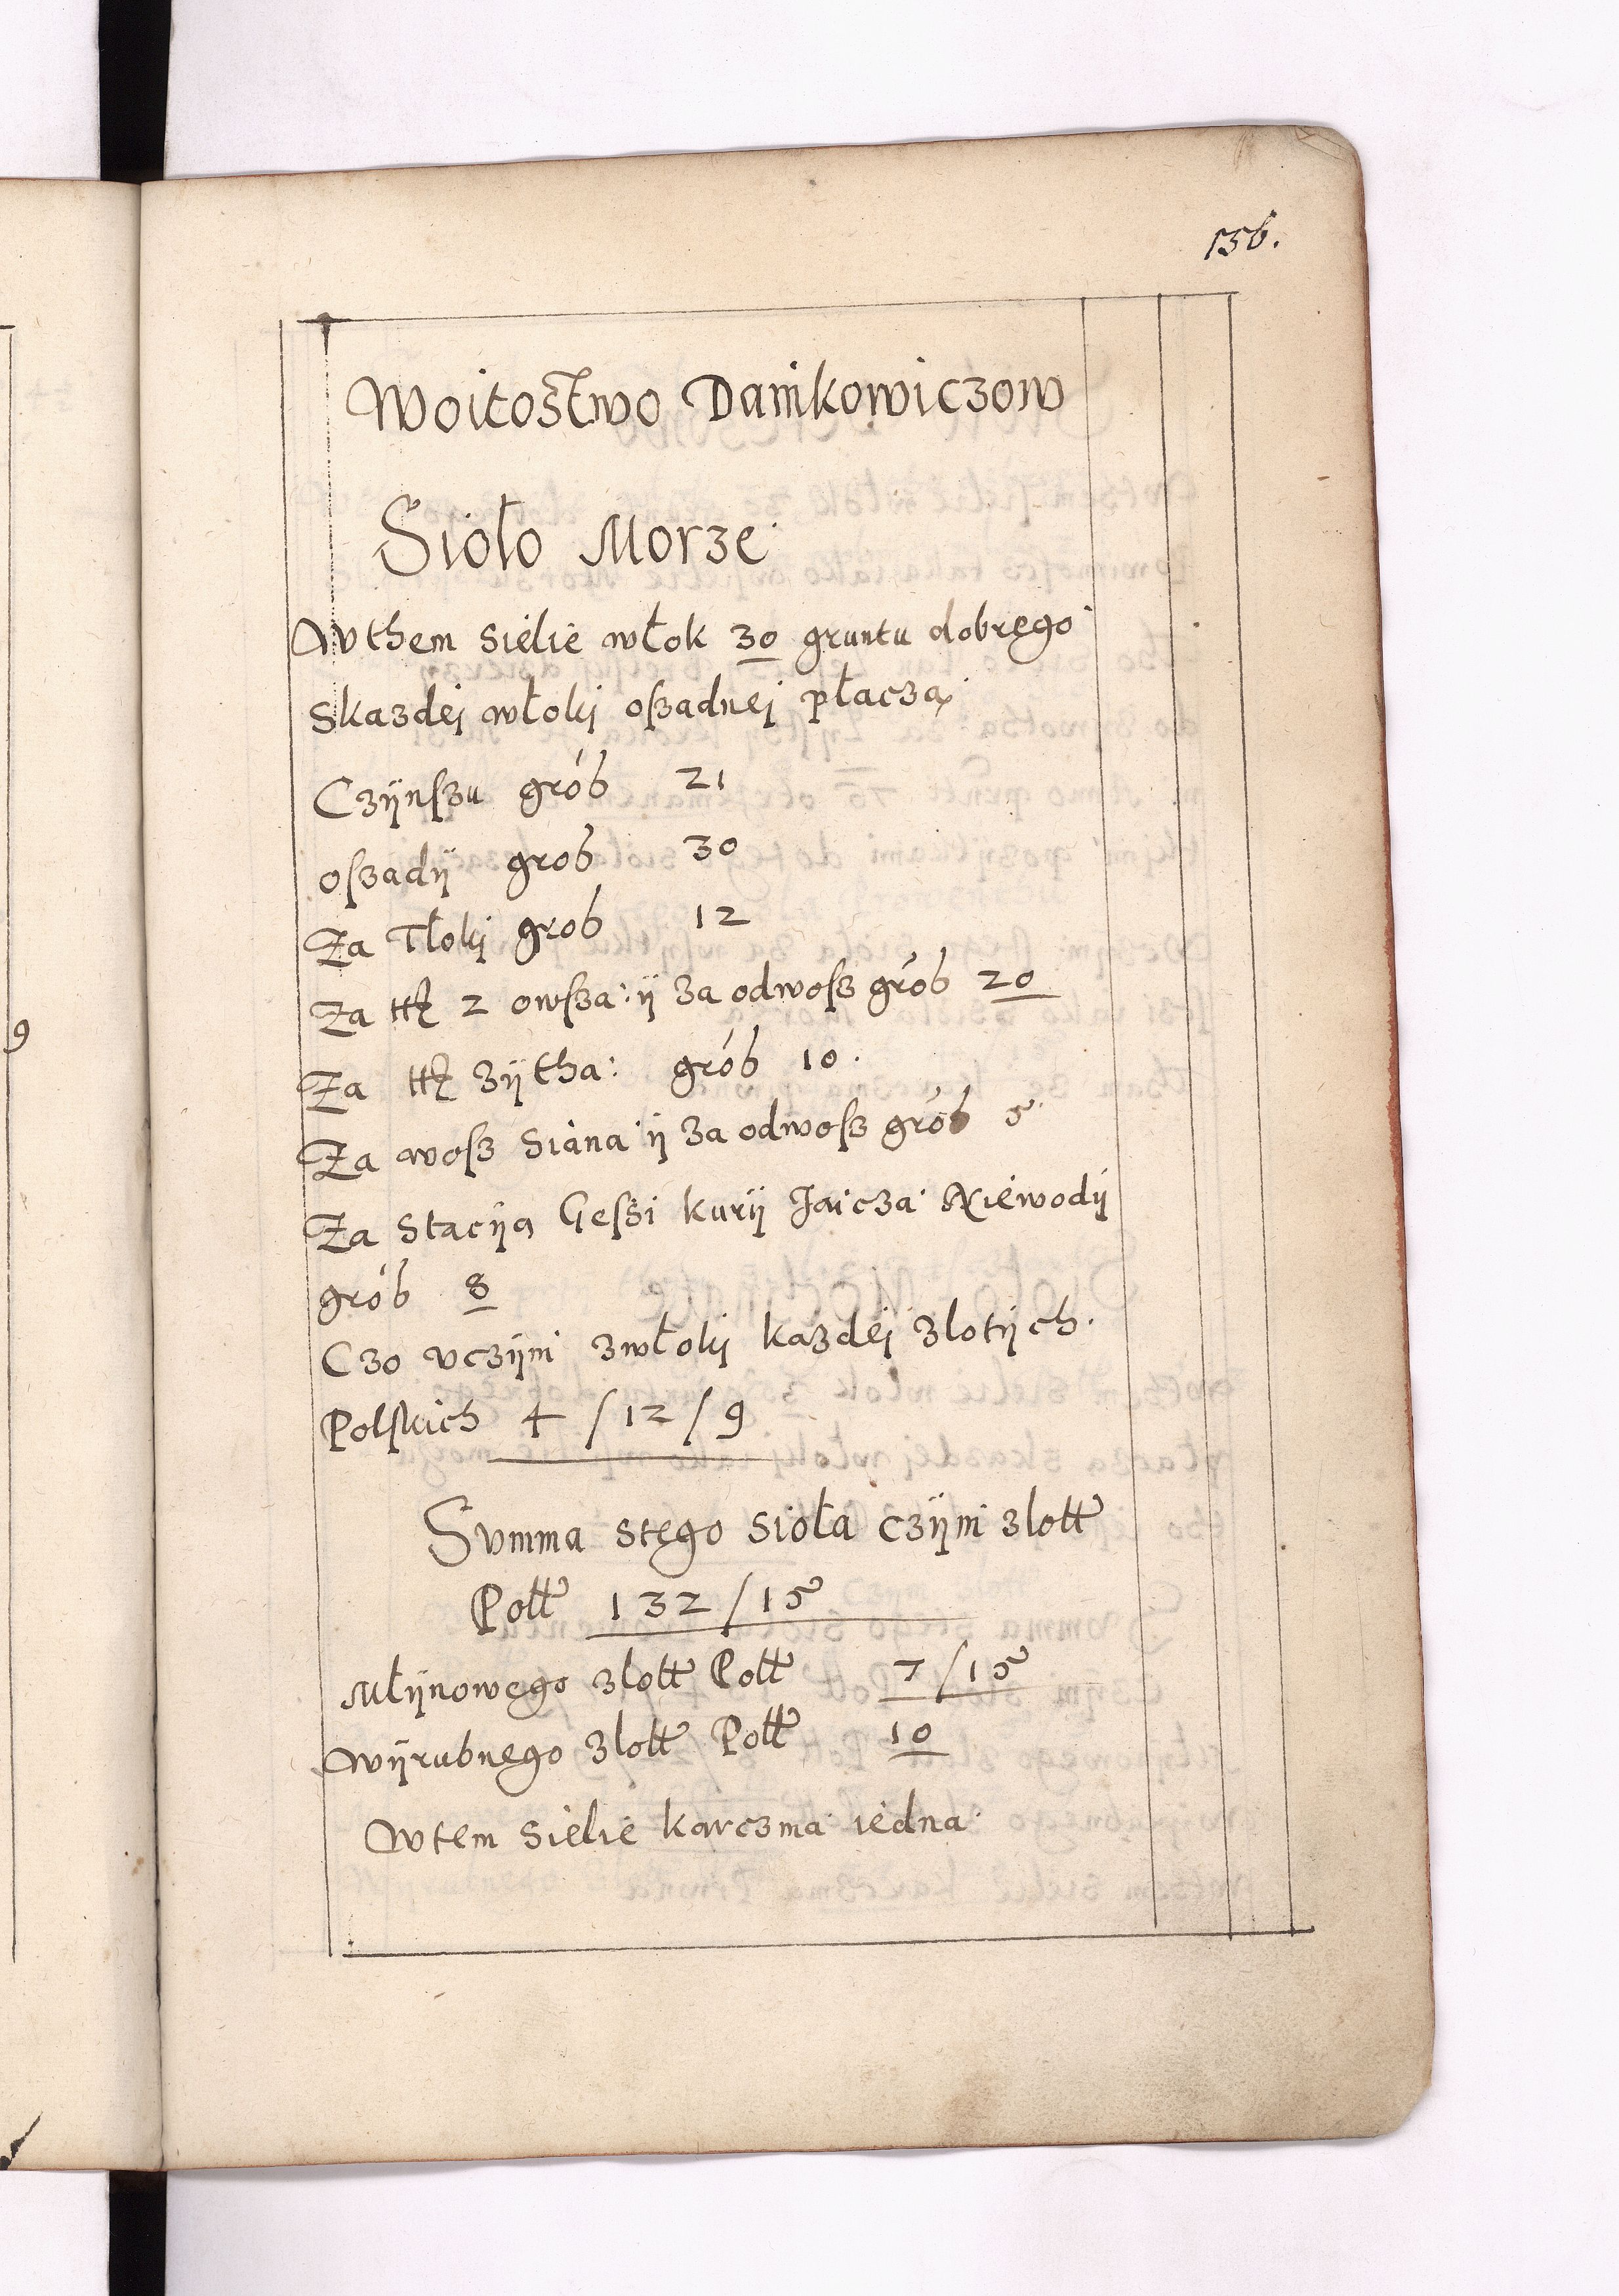 156.
Woitostwo Danikowiczow
Sioło Morze
Wthem sielie włok 30 gruntu dobrego
Skazdej włokj oszadnej płaczą
Czÿnszu grob 21
oszadÿ grob 30
Za Tłokj grob 12
Za 2 owsza: ÿ za odwosz grob 20
Za zÿtha: grob 10.
Za wosz siana ÿ za odwosz grob 5
Za stacÿą Geszi kurÿ Jaicza Niewodÿ
grob 8
Czo vczÿni zwłokj kazdej zlotÿch.
Polskich 4 / 12 / 9
Svmma stego sioła czÿni zlott
Poltt 132 / 15
Młÿnowego zlott Poltt 7 / 15
wÿrubnego zlott Poltt 10
Wtem sielie karczma iedna
9